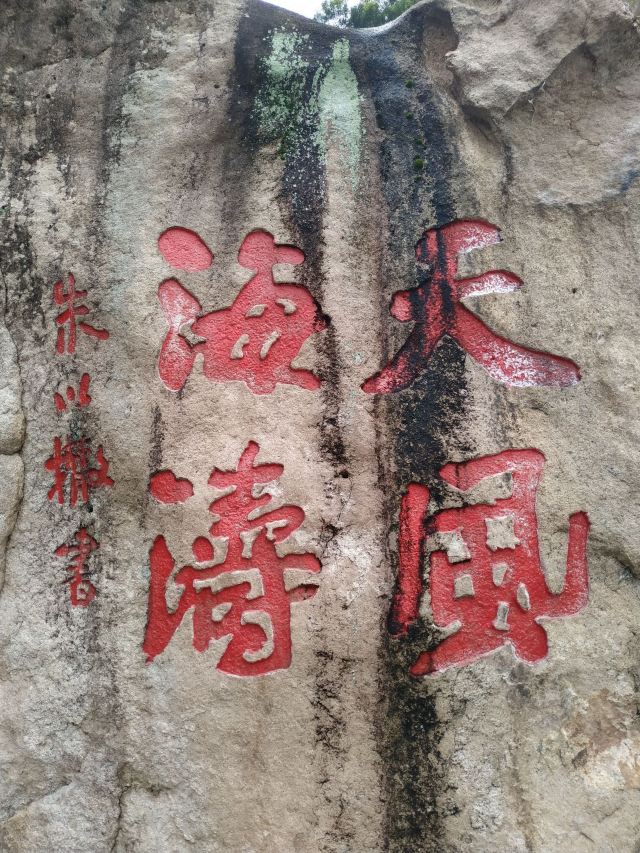 天風
海濤
朱以撒書